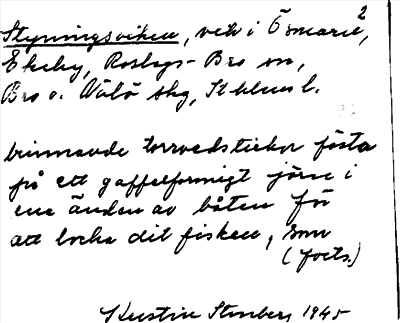 Styrningsviken, vik i Ösmarie, 2
Ekeby, Roslags-Bro sn,
Bro o. Vätö skg, Sthlms l.
brinnande torrvedstickor fästa
på ett gaffelformigt järn i
ena änden av båten för
att locka dit fisken, som
(forts.)
Kerstin Stenberg 1945